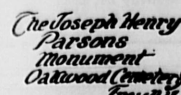 The Joseph Henry
Parsons
Monument
Oakwood Cemetery